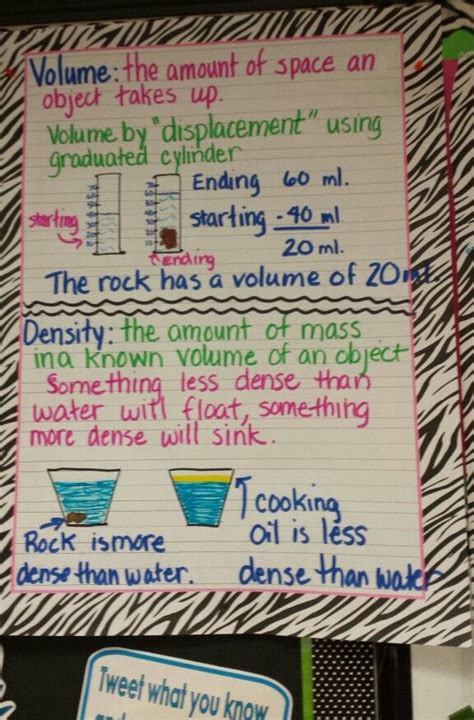 Volume: the amount of space an
object takes up.
Volume by "displacement" using
graduated cylinder
Ending 60 ml.
starting starting -40 ml
20 ml.
Ending
The rock has a volume of 20 ml.
Density: the amount of mass
in a known volume of an object
Something less dense than
water will float, something
more dense will sink.
Rock is more
dense than water.
cooking
oil is less
dense than water
Tweet what you know